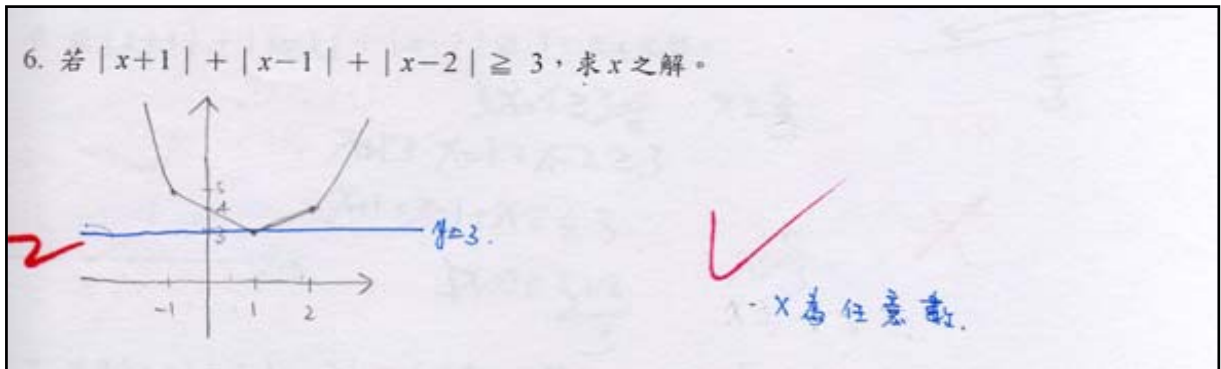 6. 若 | x+1 | + | x-1 | + | x-2 | ≧ 3，求 x 之解。
5
4
3
y=3.
-1 1 2
x 為任意數.